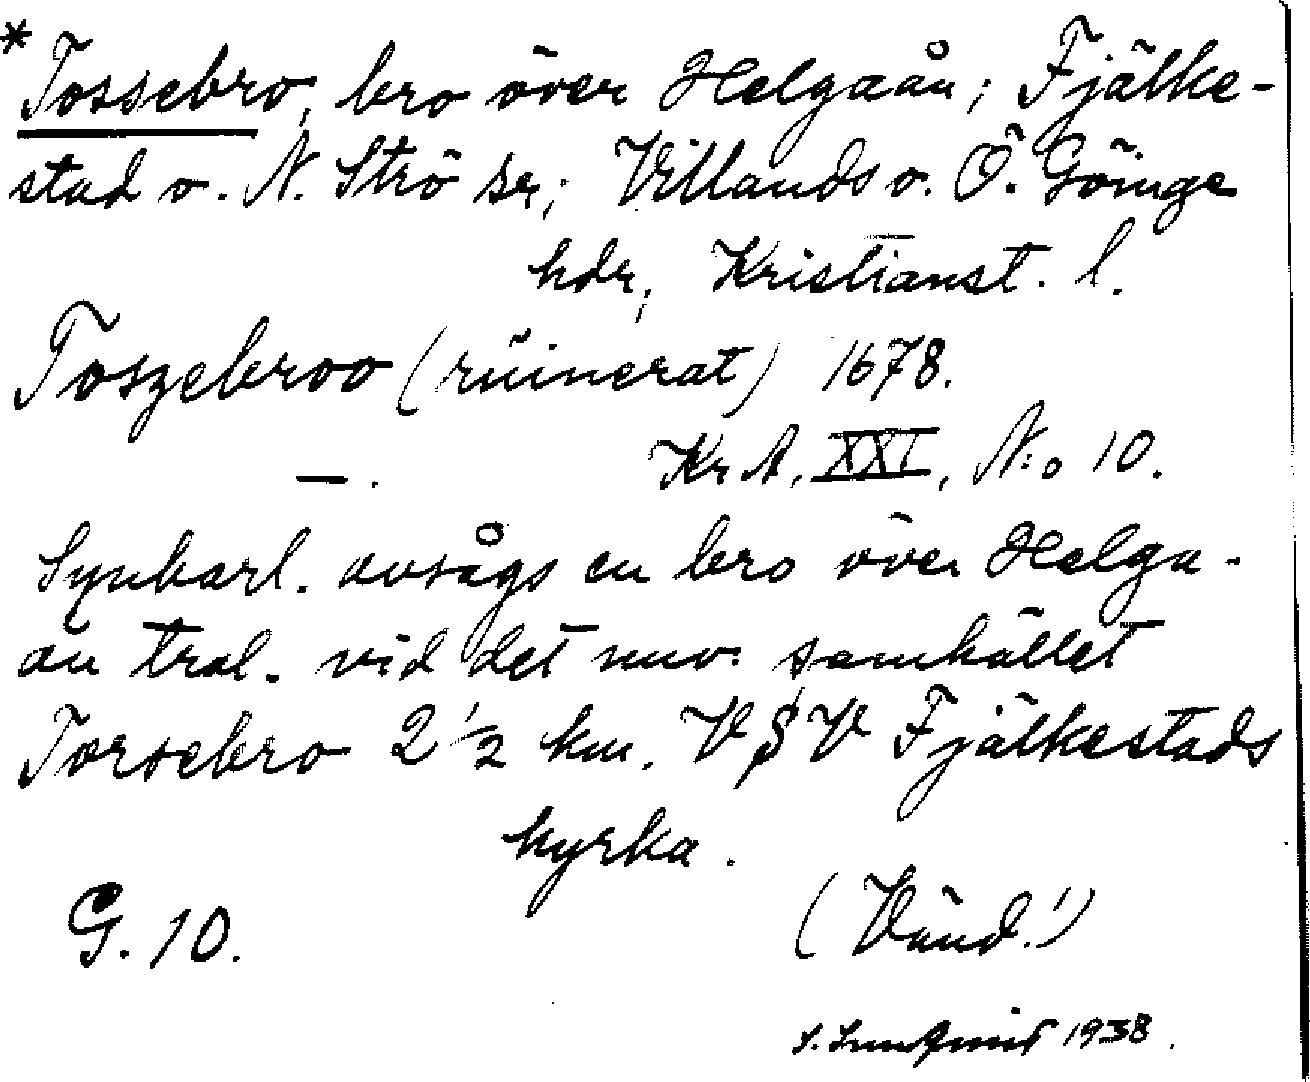 * Tossebro, bro över Helgaån; Fjälke-
stad o. N. Strö sr; Villands o. Ö. Göinge
hdr, Kristianst. l.
Toszebroo (rüinerat) 1678.
— . KrA, XXI, N:o 10.
Synbarl. avsågs en bro över Helga-
ån trol. vid det nuv. samhället
Torsebro 2 1/2 km. V S V Fjälkestads
kyrka.
G. 10. (Vänd!)
1938.